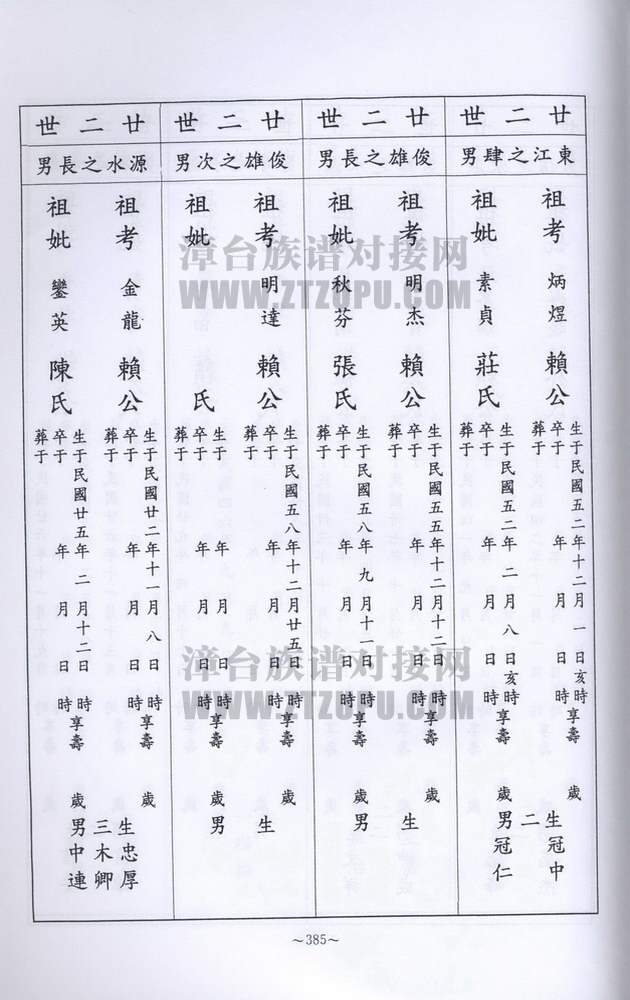 廿二世
東江之肆男
祖考 炳煜 賴公
生于民國五二年十二月一日亥時享壽 歲
卒于 年 月 日 時
葬于
祖妣 素貞 莊氏
生于民國五二年二月八日亥時享壽 歲
卒于 年 月 日 時
葬于
生二男
冠中
冠仁
廿二世
俊雄之長男
祖考 明杰 賴公
生于民國五五年十二月十二日 時享壽 歲
卒于 年 月 日 時
葬于
祖妣 秋芬 張氏
生于民國五八年九月十一日 時享壽 歲
卒于 年 月 日 時
葬于
生 男
廿二世
俊雄之次男
祖考 明達 賴公
生于民國五八年十二月廿五日 時享壽 歲
卒于 年 月 日 時
葬于
祖妣 氏
生于 年 月 日 時享壽 歲
卒于 年 月 日 時
葬于
生 男
廿二世
源水之長男
祖考 金龍 賴公
生于民國廿二年十一月八日 時享壽 歲
卒于 年 月 日 時
葬于
祖妣 鑾英 陳氏
生于民國廿五年二月十二日 時享壽 歲
卒于 年 月 日 時
葬于
生三男
忠厚
木卿
中連
~385~
漳台族谱对接网
WWW.ZTZUPU.COM
漳台族谱对接网
WWW.ZTZUPU.COM